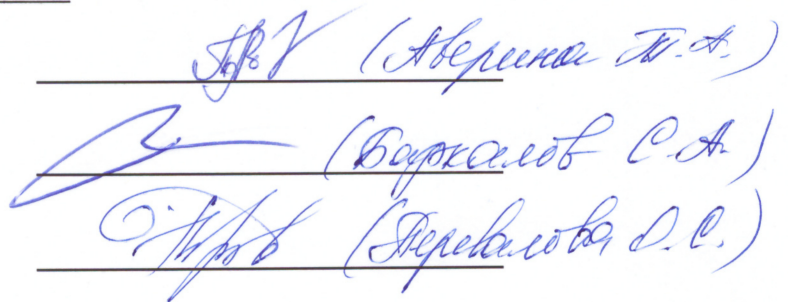 (Аверина Т.А.)
(Баркалов С.А.)
(Перевалова О.С.)